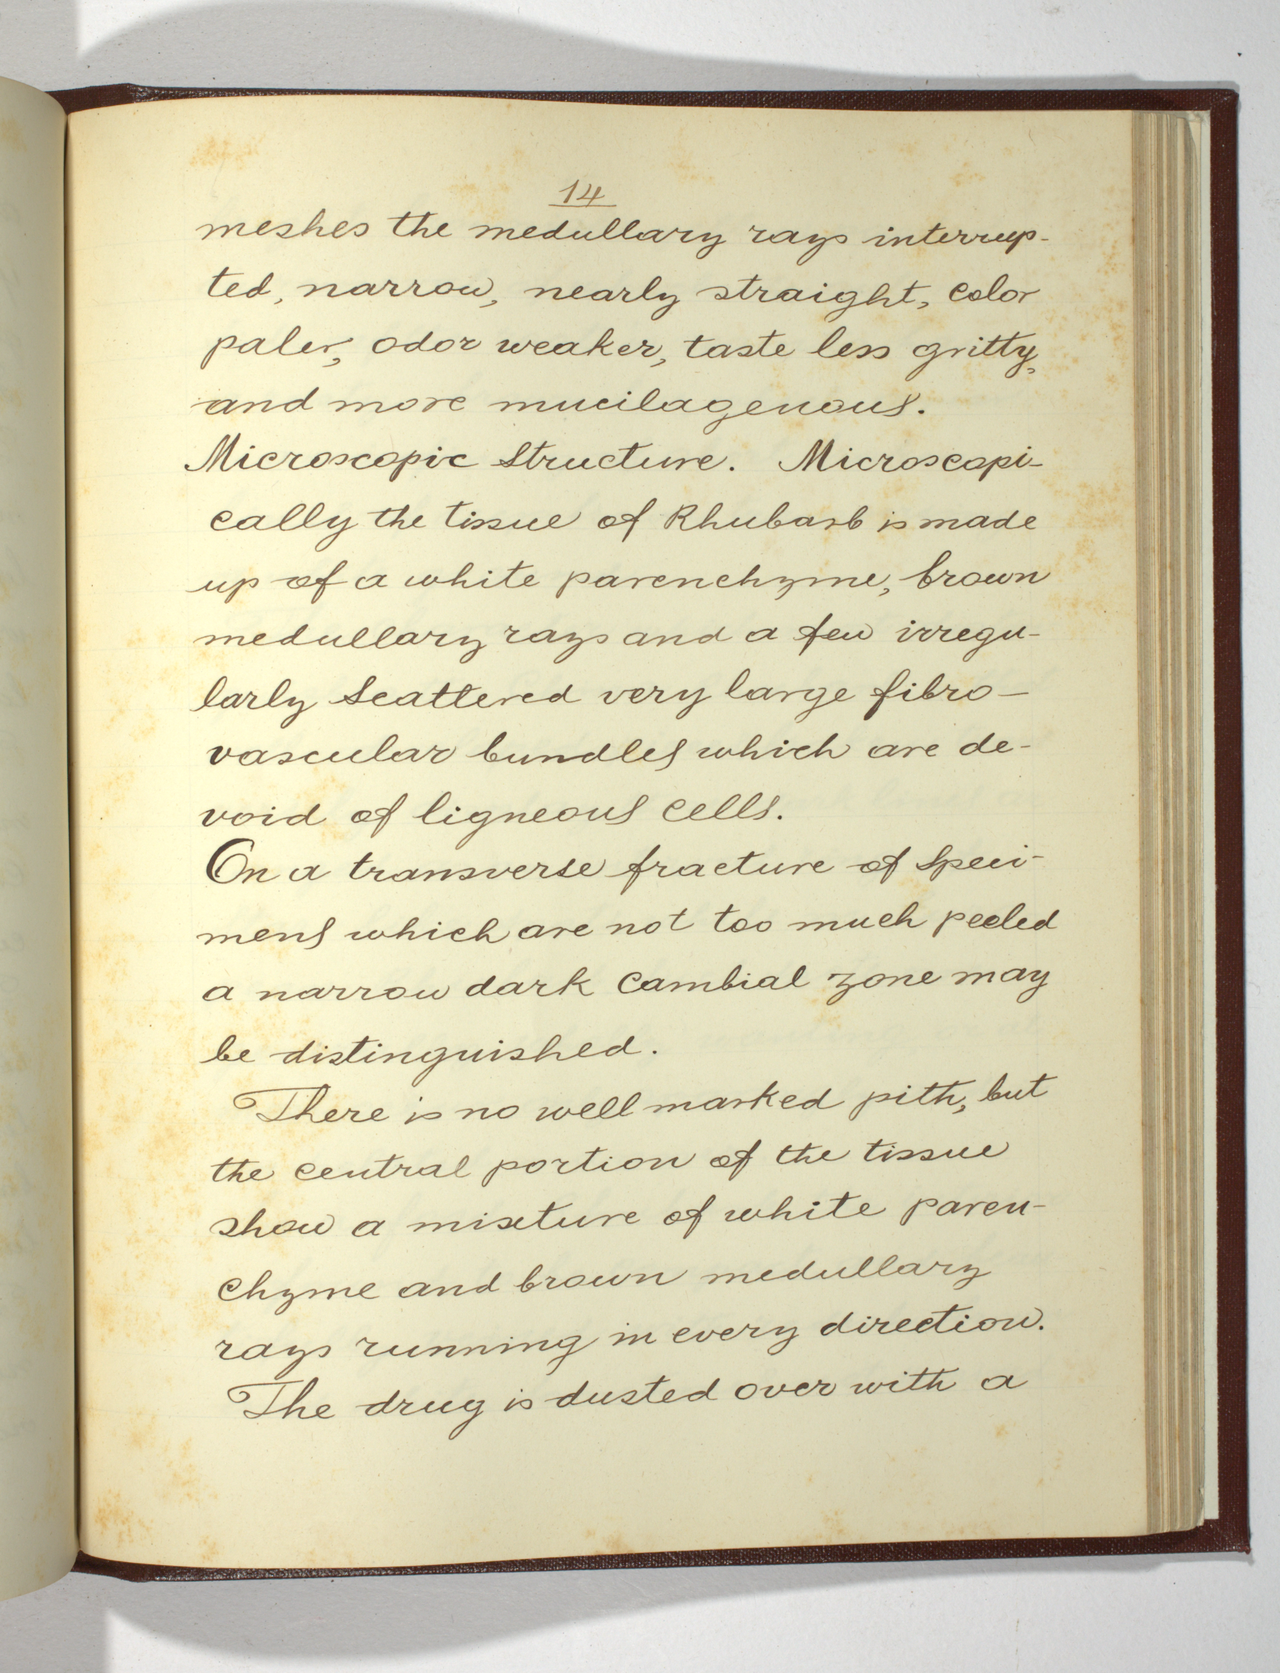 14
meshes the medullary rays interrup-
ted, narrow, nearly straight, color
paler, odor weaker, taste less gritty,
and more mucilagenous.
Microscopic Structure. Microscopi-
cally the tissue of Rhubarb is made
up of a white parenchyme, brown
medullary rays and a few irregu-
larly scattered very large fibro-
vascular bundles which are de-
void of ligneous cells.
On a transverse fracture of speci-
mens which are not too much peeled
a narrow dark cambial zone may
be distinguished.
There is no well marked pith, but
the central portion of the tissue
show a mixture of white paren-
chyme and brown medullary
rays running in every direction.
The drug is dusted over with a